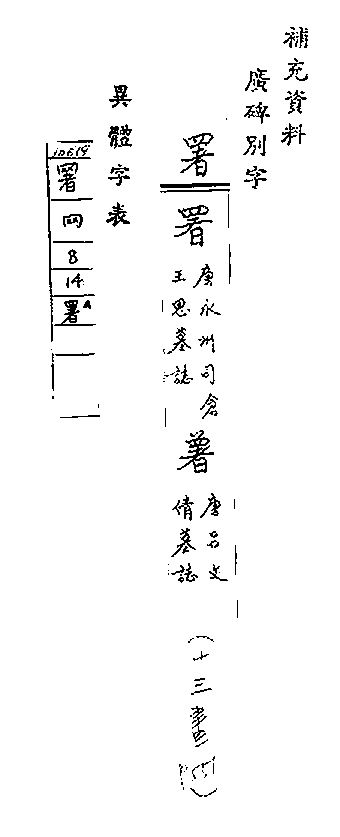 補充資料
廣碑別字
署
署
唐永州司倉
王思墓誌
署
唐呂文
倩墓誌
(十三畫
異體字表
10619
署
罒
8
14
署A